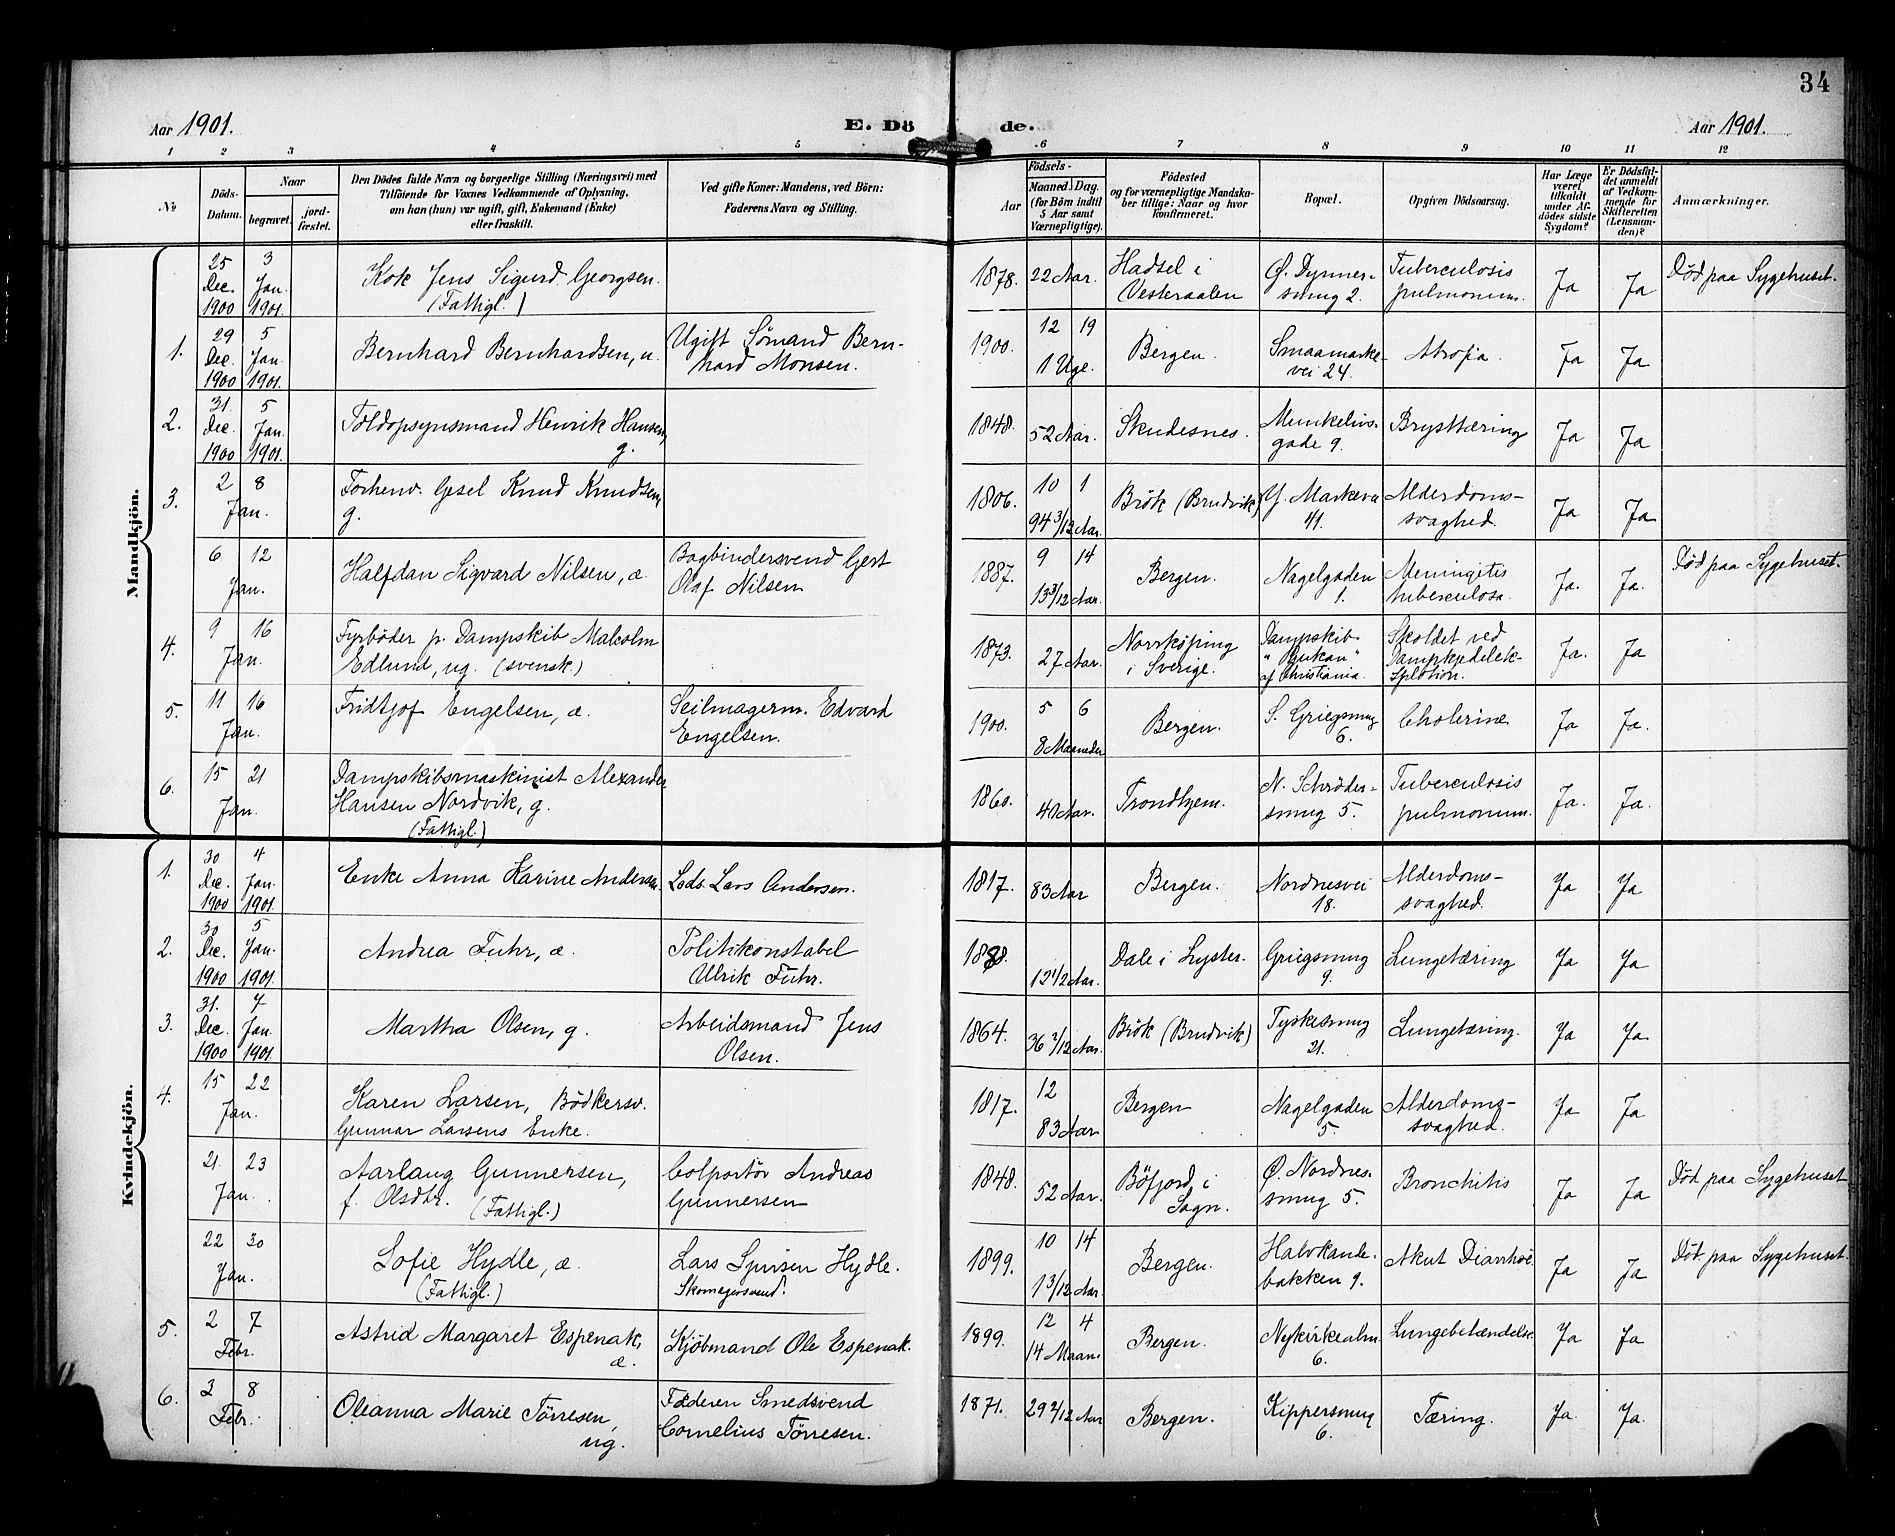 34
Aar 1901.
E. Döde.
Aar 1901.
1 2 3 4 5 6 7 8 9 10 11 12
No
Döds-
Datum.
Naar
begravet.
jord-
fæstet.
Den Dödes fulde Navn og borgerlige Stilling (Næringsvei) med
Tilföiende for Voxnes Vedkommende af Oplysning,
om han (hun) var ugift, gift, Enkemand (Enke)
eller fraskilt.
Ved gifte Koner: Mandens, ved Börn:
Faderens Navn og Stilling.
Födsels-
Aar
Maaned. Dag.
(for Börn indtil
5 Aar samt
Værnepligtige).
Födested
og for værnepligtige Mandska-
ber tillige: Naar og hvor
konfirmeret.
Bopæl.
Opgiven Dödsaarsag.
Har Læge
været
tilkaldt
under Af-
dödes sidste
Sygdom?
Er Dödsfal-
det anmeldt
af Vedkom-
mende for
Skifteretten
(Lensman-
den)?
Anmærkninger.
Mandkjön.
25 Dec. 1900
3 Jan. 1901.
Kok Jens Sigurd Georgsen.
(Fattigl.)
1878. 22 Aar.
Hadsel i
Vesteraalen
Ø. Dynner-
smug 2.
Tuberculosis
pulmonum.
Ja Ja
Död paa Sygehuset.
1.
29 Dec. 1900
5 Jan. 1901.
Bernhard Bernhardsen, u.
Ugift Sømand Bern-
hard Monsen.
1900. 12 19
1 Uge.
Bergen.
Smaamarke-
vei 24.
Atrofia.
Ja Ja
2.
31. Dec. 1900
5 Jan. 1901.
Toldopsynsmand Henrik Hansen,
g.
1848. 52 Aar.
Skudesnes.
Munkelivs-
gade 9.
Brysttæring
Ja Ja
3.
2 8
Jan.
Forhenv. Gesel Knud Knudsen,
g.
1806. 10 1
94 3/12 Aar.
Brök (Brudvik)
Y. Markevei
41.
Alderdoms-
svaghed.
Ja Ja
6 12
Jan.
Halfdan Sigvard Nilsen, æ.
Bogbindersvend Gert
Olaf Nilsen
1887. 9 14
13 3/12 Aar.
Bergen.
Nagelgaden
1.
Meningitis
tuberculosa.
Ja. Ja.
Död paa Sygehuset.
4.
9 16
Jan.
Fyrböder p. Dampskib Malcolm
Edlund, ug. (svensk.)
1873. 27 Aar.
Norrköping
i Sverige.
Dampskib
"Rjukan"
af Christiania.
Skoldet ved
Dampkjedelek-
splotion.
Ja. Ja
5.
11 16
Jan.
Fridtjof Engelsen, æ.
Seilmagerm. Edvard
Engelsen.
1900. 5 6
8 Maaneder
Bergen.
S. Griegsmug
6.
Cholerine
Ja Ja.
6.
15 21
Jan.
Dampskibsmaskinist Alexander
Hansen Nordvik, g.
(Fattigl.)
1860. 40 Aar.
Trondhjem.
N. Schröder-
smug 5.
Tuberculosis
pulmonum.
Ja. Ja.
Kvindekjön.
1.
30 Dec. 1900
4 Jan. 1901.
Enke Anna Karine Andersen.
Lods. Lars Andersen.
1817. 83 Aar
Bergen.
Nordnesvei
18.
Alderdoms-
svaghed.
Ja Ja
2.
30 Dec. 1900
5 Jan. 1901.
Andrea Fuhr, æ.
Politikonstabel
Ulrik Fuhr.
1888. 12 1/2 Aar.
Dale i Lyster.
Griegsmug
9.
Lungetæring
Ja Ja
3.
31. Dec. 1900
4 Jan. 1901.
Martha Olsen, g.
Arbeidsmand Jens
Olsen.
1864. 36 2/12 Aar.
Brök (Brudvik)
Tyskesmug
21.
Lungetæring.
Ja Ja
4.
15 22
Jan.
Karen Larsen, Bödkersv.
Gunnar Larsens Enke.
1817. 12
83 Aar
Bergen
Nagelgaden
5.
Alderdoms-
svaghed.
Ja Ja
21. 23
Jan.
Aarlaug Gunnersen,
f. Olsdtr. (Fattigl.)
Colportör Andreas
Gunnersen
1848. 52 Aar.
Böfjord i
Sogn.
Ø. Nordnes-
smug 5.
Bronchitis
Ja Ja
Död paa Sygehuset
22 30
Jan.
Sofie Hydle, æ.
(Fattigl.)
Lars Sjursen Hydle.
Skomagersvend.
1899. 10 14
1 3/12 Aar.
Bergen.
Halvkande-
bakken 9.
Akut Diarrhoe.
Ja Ja
Död paa Sygehuset.
5.
2 7
Febr.
Astrid Margaret Espenak,
æ.
Kjöbmand Ole Espenak.
1899. 12 4
14 Maan.
Bergen.
Nykirkealm.
6.
Lungebetændelse.
Ja Ja
6.
3 8
Febr.
Oleanna Marie Törresen,
ug.
Faderen Smedsvend
Cornelius Törresen.
1871. 29 2/12 Aar
Bergen.
Kippersmug
6.
Tæring.
Ja. Ja.